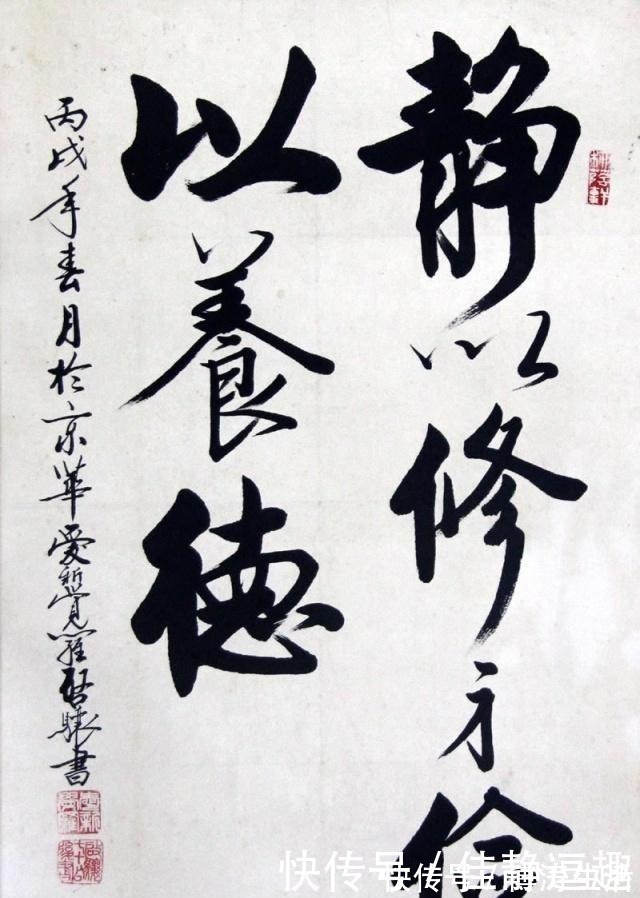 靜以修身儉
以養德
丙戌年春月於京華愛新覺羅啟驤書
快传号
快传号